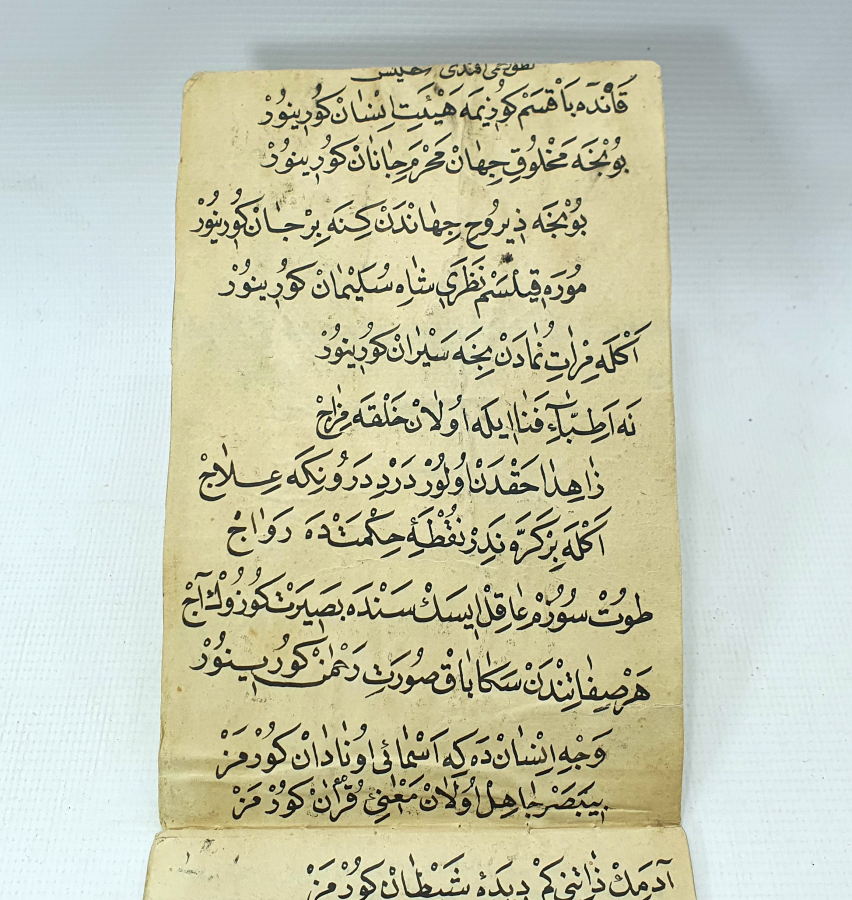 قَانْدَه بَاقْسَمْ كُوزِيمَه هَيْئَتِ اِنْسَانْ كُورِينُورْ
بُونْجَه مَخْلُوقِ جِهَانْ مَحْرَمِ جَانَانْ كُورِينُورْ
بُونْجَه ذِيرُوحِ جِهَانْدَنْ كِنَه بِرْ جَانْ كُورِينُورْ
مُورَه قِيلْسَمْ نَظَرِي شَاهِ سُلَيْمَانْ كُورِينُورْ
اَكْلَه مِرْاتِ نُمَادَنْ نِجَه سَيْرَانْ كُورِينُورْ
نَه اَطِبَّاءِ فَنَا ايلَه اُولَانْ خَلْقَه مِزَاجْ
زَاهِدَا حَقْدَنْ اُولُورْ دَرْدِ دَرُونِكَه عِلَاجْ
اَكْلَه بِرْ كَرَّه نَدِرْ نُقْطَهِٔ حِكْمَتْدَه رَوَاجْ
طُوتْ سُوزُمْ عَاقِلْ ايسَكْ سَنْدَه بَصِيرَتْ كُوزُوكْ آجْ
هَرْ صِفَاتِنْدَنْ سَكَا بَاقْ صُورَتِ رَحْمٰنْ كُورِينُورْ
وَجْهِ اِنْسَانْ دَه كِه اَسْمَائِى اُو نَادَانْ كُورْمَزْ
بِيبَصَرْ جَاهِلْ اُولَانْ مَعْنِىِٔ قُرْاٰنْ كُورْمَزْ
آدَمِكْ ذَاتِنِى كِمْ دِيدَهٔ شَيْطَانْ كُورْمَزْ